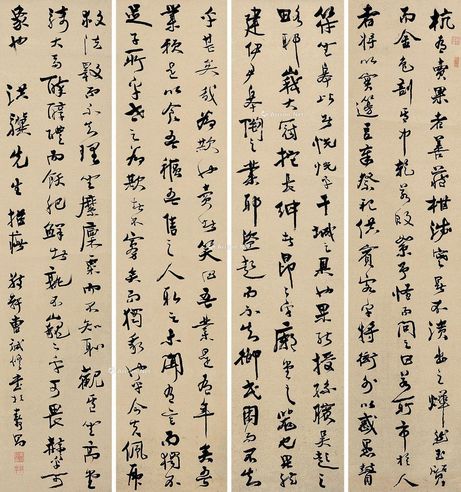 杭有賣果者善藏柑涉寒暑不潰出之燁然玉質
而金色剖其中乾若敗絮予怪而問之曰若所市於人
者將以實籩豆奉祭祀供賓客乎將衒外以惑愚瞽
符坐皋比者恍恍乎干城之具也果能授孫吳之
略耶峩大冠拖長紳者昂昂乎廟堂之器也果能
建伊尹皋陶之業耶盜起而不知御民困而不知
乎甚矣哉為欺也賣者笑曰吾業是有年矣吾
業賴是以食吾軀吾售之人取之未聞有言而獨不
足子所乎世之為欺者不寡矣而獨我也乎今夫佩虎
救法斁而不知理坐縻廩粟而不知恥觀其坐高堂
騎大馬醉醇醴而飫肥鮮者孰不巍巍乎可畏赫赫乎可
象也 洪驥先生雅屬 曹誠修書於